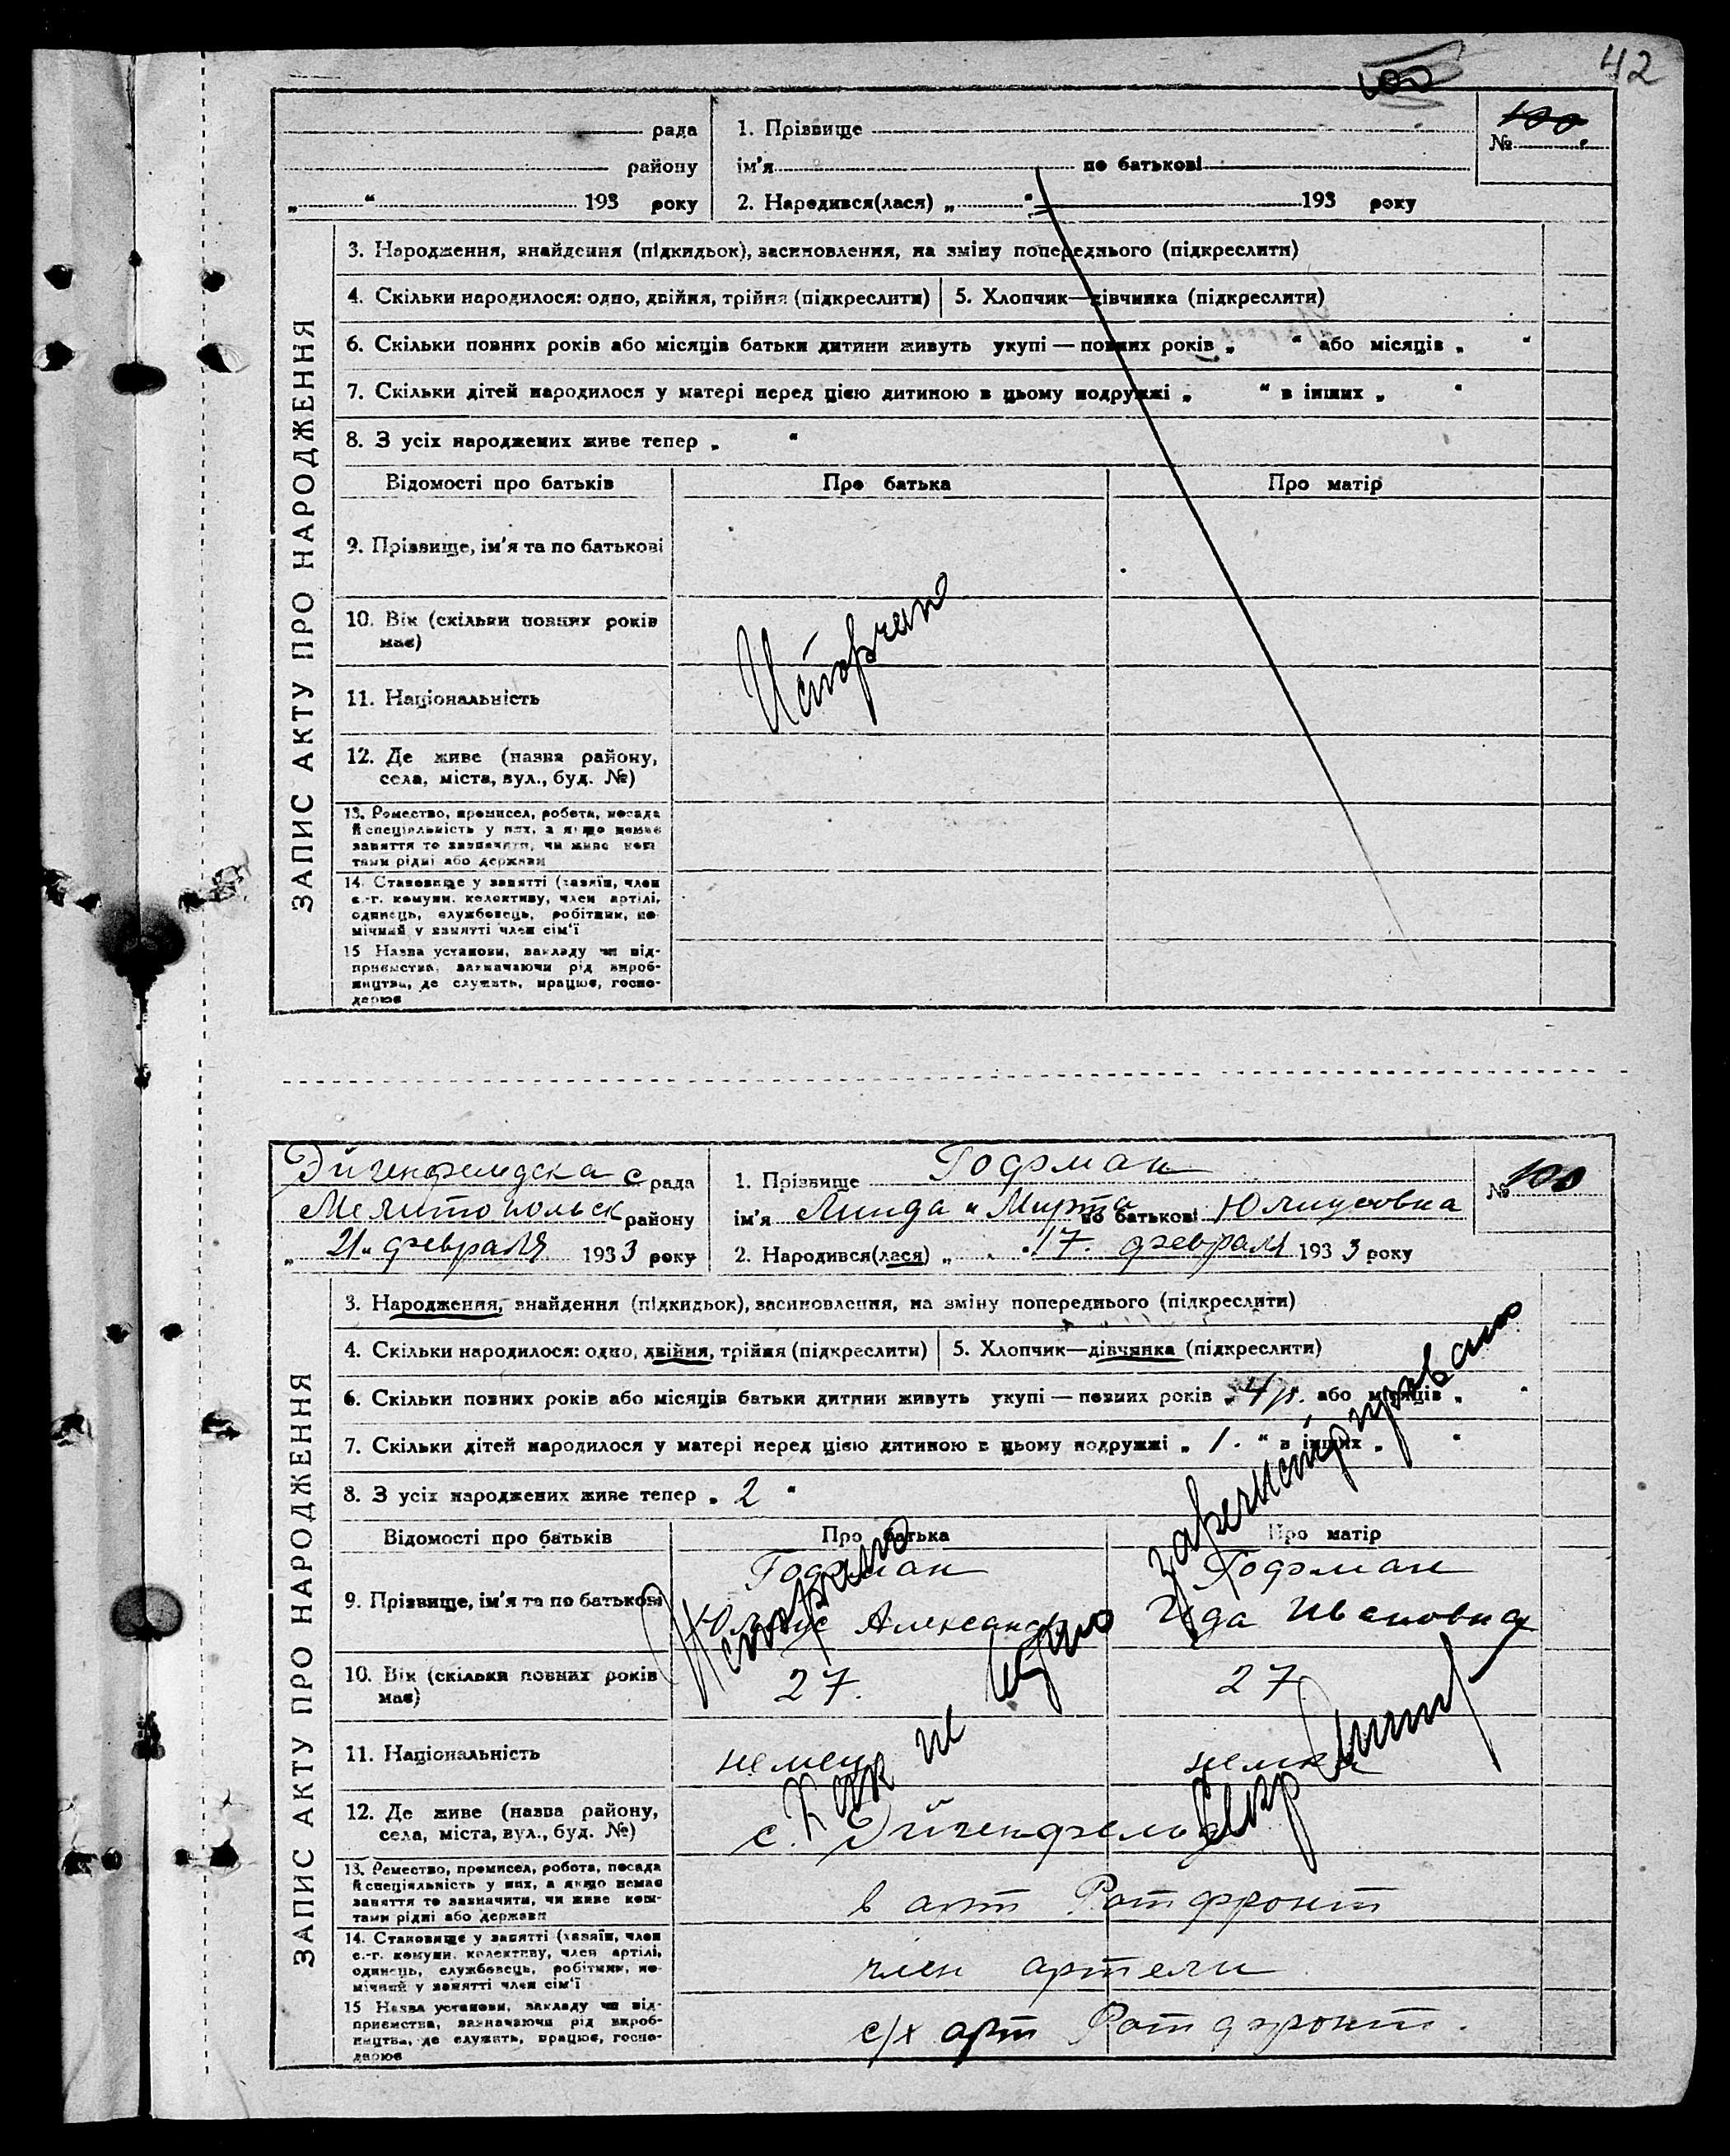 42
100
рада
1. Прізвище
№ 100.
району
ім'я по батькові
„ “ 193 року
2. Народився(лася) „ “ 193 року
ЗАПИС АКТУ ПРО НАРОДЖЕННЯ
3. Народження, знайдення (підкидьок), засиновлення, на зміну попереднього (підкреслити)
4. Скільки народилося: одно, двійня, трійня (підкреслити)
5. Хлопчик—дівчинка (підкреслити)
6. Скільки повних років або місяців батьки дитини живуть укупі — повних років „ “ або місяців „ “
7. Скільки дітей народилося у матері перед цією дитиною в цьому подружжі „ “ в інших „ “
8. З усіх народжених живе тепер „ “
Відомості про батьків
Про батька
Про матір
9. Прізвище, ім'я та по батькові
10. Вік (скільки повних років
має)
Испорчено
11. Національність
12. Де живе (назва району,
села, міста, вул., буд. №)
13. Ремество, промисел, робота, посада
й спеціяльність у них, а якщо немає
заняття то зазначити, чи живе кош-
тами рідні або держави
14. Становище у занятті (хазяїн, член
с.-г. комуни, колективу, член артілі,
одинець, службовець, робітник, по-
мічний у занятті член сім'ї
15 Назва установи, закладу чи під-
приємства, зазначаючи рід вироб-
ництва, де служить, працює, госпо-
дарює
Эйгенфельдска с рада
1. Прізвище Гофман
№ 100
Мелитопольск району
ім'я Линда и Мирта по батькові Юлиусовна
„ 21 “ февраля 1933 року
2. Народився(лася) „ “ 17. февраля 1933 року
ЗАПИС АКТУ ПРО НАРОДЖЕННЯ
3. Народження, знайдення (підкидьок), засиновлення, на зміну попереднього (підкреслити)
4. Скільки народилося: одно, двійня, трійня (підкреслити)
5. Хлопчик—дівчинка (підкреслити)
6. Скільки повних років або місяців батьки дитини живуть укупі — повних років „ 4 р. або місяців „ “
7. Скільки дітей народилося у матері перед цією дитиною в цьому подружжі „ 1. “ в інших „ “
8. З усіх народжених живе тепер „ 2 “
Відомості про батьків
Про батька
Про матір
9. Прізвище, ім'я та по батькові
Гофман
Юлиус Александр
Гофман
Ида Ивановна
Испорчено
зарегистрировано
10. Вік (скільки повних років
має)
27.
27
11. Національність
немец
немка
Как не
12. Де живе (назва району,
села, міста, вул., буд. №)
с. Эйгенфельд
13. Ремество, промисел, робота, посада
й спеціяльність у них, а якщо немає
заняття то зазначити, чи живе кош-
тами рідні або держави
в арт Ротфронт
14. Становище у занятті (хазяїн, член
с.-г. комуни, колективу, член артілі,
одинець, службовець, робітник, по-
мічний у занятті член сім'ї
член артели
15 Назва установи, закладу чи під-
приємства, зазначаючи рід вироб-
ництва, де служить, працює, госпо-
дарює
с/х арт Ротфронт.